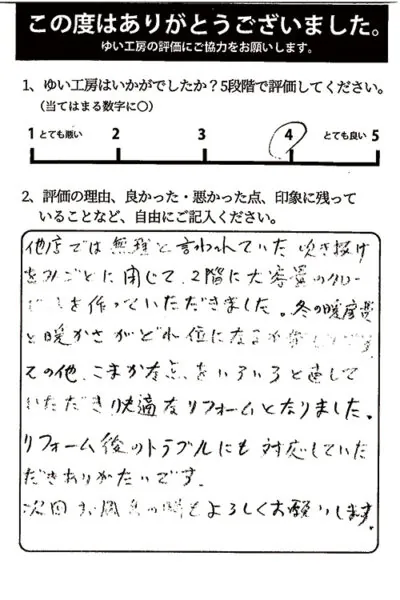 この度はありがとうございました。
ゆい工房の評価にご協力をお願いします。
1、ゆい工房はいかがでしたか？5段階で評価してください。
（当てはまる数字に○）
1 とても悪い 2 3 4 とても良い 5
2、評価の理由、良かった・悪かった点、印象に残って
いることなど、自由にご記入ください。
他店では無理と言われていた吹き抜け
をみごとに閉じて、2階に大容量のクロー
を作っていただきました。冬の暖房費
と暖かさがどれ位になるか
その他、こまかな点、をいろいろと直して
いただき快適なリフォームとなりました。
リフォーム後のトラブルにも対応していた
だきありがたいです。
次回お風呂の際もよろしくお願いします。